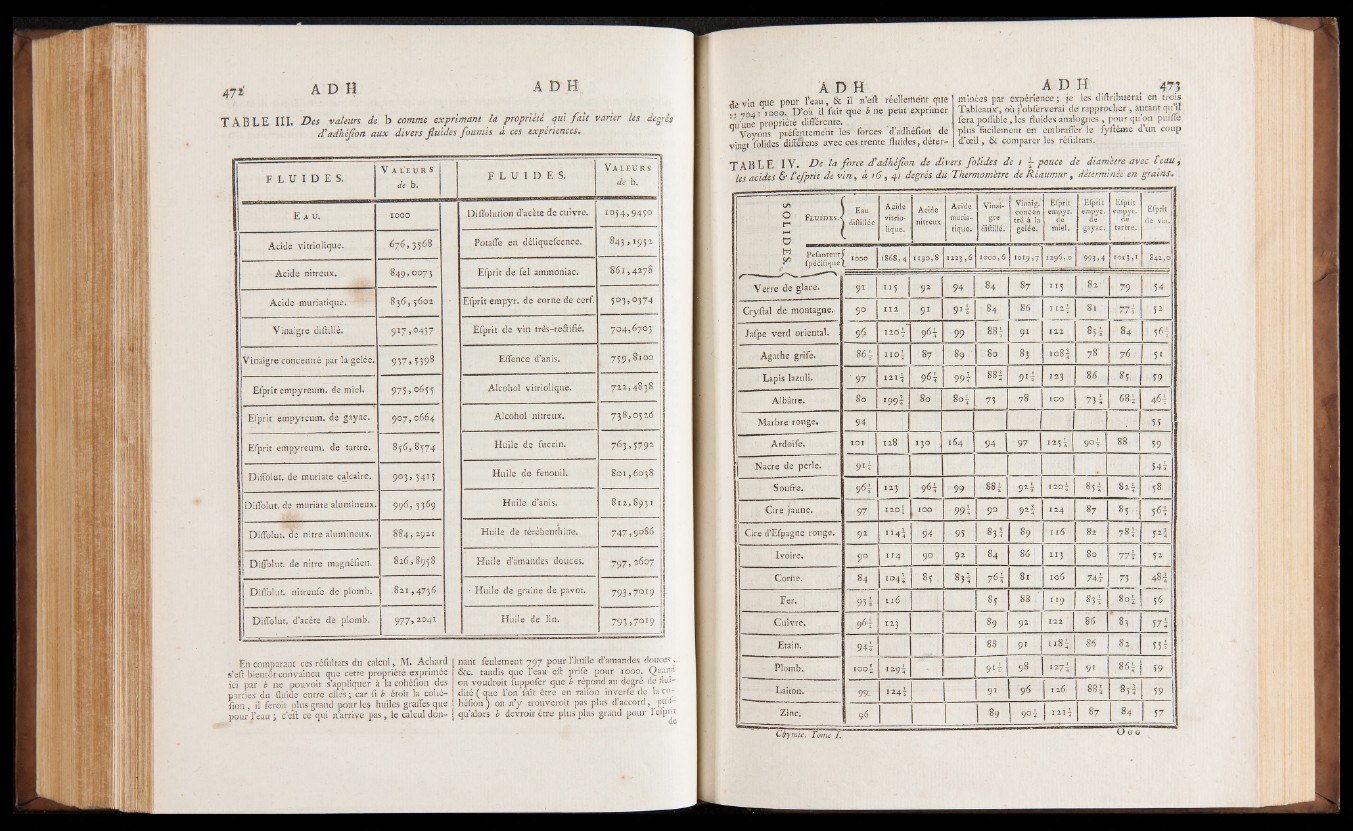 472 ADH ADH
TABLE III. Des valeurs de b comme exprimant la propriété qui fait varier les degrés
d'adhéſion aux divers fluides ſoumis à ces expériences.
FLUIDES. VALEURS de b. FLUIDES. VALEURS de b.
EAU. 1000 Diſſolution d'acète de cuivre. 1054,9450
Acide vitriolique. 676,3568 Potaſſe en déliqueſcence. 843,1952
Acide nitreux. 849,0073 Eſprit de ſel ammoniac. 861,4278
Acide muriatique. 836,5602 Eſprit empyr. de corne de cerf. 503,0374
Vinaigre diſtillé. 917,0437 Eſprit de vin très-rectifié. 704,6703
Vinaigre concentré par la gelée. 937,5398 Eſſence d'anis. 759,8100
Eſprit empyreum. de miel. 975,0655 Alcohol vitriolique. 722,4838
Eſprit empyreum. de gayac. 907,0664 Alcohol nitreux. 738,0526
Eſprit empyreum. de tartre. 856,8574 Huile de ſuccin. 763,5792
Diſſolut. de muriate calcaire. 903,3415 Huile de fenouil. 801,6038
Diſſolut. de muriate alumineux. 996,3369 Huile d'anis. 812,8931
Diſſolut. de nitre alumineux. 884,2921 Huile de térébenthine. 747,9086
Diſſolut. de nitre magnéſien. 826,8958 Huile d'amandes douces. 797,2607
Diſſolut. nitreuſe de plomb. 821,4736 Huile de graine de pavot. 793,7019
Diſſolut. d'acète de plomb. 977,2041 Huile de lin. 793,7019
En comparant ces réſultats du calcul, M. Achard
s'eſt bientôt convaincu que cette propriété exprimée
ici par b ne pouvoit s'appliquer à la cohéſion des
parties du fluide entre elles; car ſi b étoit la cohé-
ſion, il ſeroit plus grand pour les huiles graſſes que
pour l'eau; c'eſt ce qui n'arrive pas, le calcul don-
nant ſeulement 797 pour l'huile d'amandes douces,
&c. tandis que l'eau eſt priſe pour 1000. Quand
on voudroit ſuppoſer que b répond au degré de flui-
dité (que l'on ſait être en raiſon inverſe de la co-
héſion) on n'y trouveroit pas plus d'accord, puiſ-
qu'alors b devroit être plus plus grand pour l'eſprit
de
ADH ADH 473
de vin que pour l'eau, & il n'eſt réellement que
:: 704 : 1000. D'où il ſuit que b ne peut exprimer
qu'une propriété différente.
Voyons préſentement les forces d'adhéſion de
vingt ſolides différens avec ces trente fluides, déter-
minées par expérience; je les diſtribuerai en trois
Tableaux, où j'obſerverai de rapprocher, autant qu'il
ſera poſſible, les fluides analogues, pour qu'on puiſſe
plus facilement en embraſſer le ſyſtême d'un coup
d'œil, & comparer les réſultats.
TABLE IV. De la force d'adhéſion de divers ſolides de 1 ½ pouce de diamètre avec l'eau,
les acides & l'eſprit de vin, à 16, 41 degrés du Thermomètre de Réaumur, déterminée en grains.
SOLIDES FLUIDES. Eau diſtillée Acide vitriolique. Acide nitreux Acide muriatique. Vinaigre diſtillé. Vinaig. concentré à la gelée. Eſprit empyr. de miel. Eſprit empyr. de gayac. Eſprit empyr. de tartre. Eſprit de vin.
Peſanteur ſpécifique 1000 1868,4 1190,8 1223,6 1000,6 1019,7 1296,0 993,4 1013,1 842,0
Verre de glace. 91 115 92 94 84 87 115 82 79 54
Cryſtal de montagne. 90 112 91 91½ 84 86 112½ 81 77½ 52
Jaſpe verd oriental. 96 120½ 96¼ 99 88½ 91 122 85¼ 84 56½
Agathe griſe. 86½ 110½ 87 89 80 83 108¾ 78 76 51
Lapis lazuli. 97 121¾ 96¼ 99¼ 88¾ 91½ 123 86 85 59
Albâtre. 80 199¾ 80 80¼ 73 78 100 73¼ 68½ 46½
Marbre rouge. 94 55
Ardoiſe. 101 128 130 164 94 97 125¼ 90½ 88 59
Nacre de perle. 91½ 54¼
Soufre. 96½ 123 96¼ 99 88½ 92½ 120½ 85¼ 82¼ 58
Cire jaune. 97 120½ 100 99¼ 90 92¾ 124 87 85 56½
Cire d'Eſpagne rouge. 92 114¼ 94 95 83¾ 89 116 82 78½ 52¼
Ivoire. 90 114 90 92 84 86 113 80 77½ 52
Corne. 84 104½ 85 83¼ 76¼ 81 106 74½ 73 48¾
Fer. 93½ 116 85 88 119 83½ 80½ 56
Cuivre. 96½ 123 89 92 122 86 83 57¼
Etain. 94½ 88 91 118¼ 86 82 55½
Plomb. 100½ 129¼ 91½ 98 127¼ 91 86½ 59
Laiton. 99 124½ 91 96 126 88½ 85¼ 59
Zinc. 96 89 90½ 121½ 87 84 57
Chymie. Tome I. Ooo